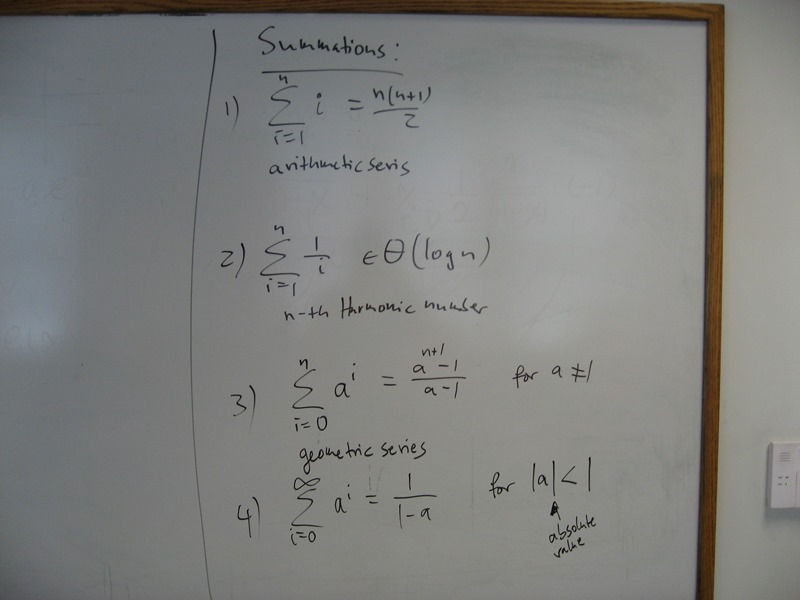 Summations:
1) ∑_{i=1}^{n} i = n(n+1)/2
arithmetic seris
2) ∑_{i=1}^{n} 1/i ∈ Θ(log n)
n-th Harmonic number
3) ∑_{i=0}^{n} a^i = (a^{n+1}-1)/(a-1) for a ≠ 1
geometric series
4) ∑_{i=0}^{∞} a^i = 1/(1-a) for |a| < 1
absolute
value